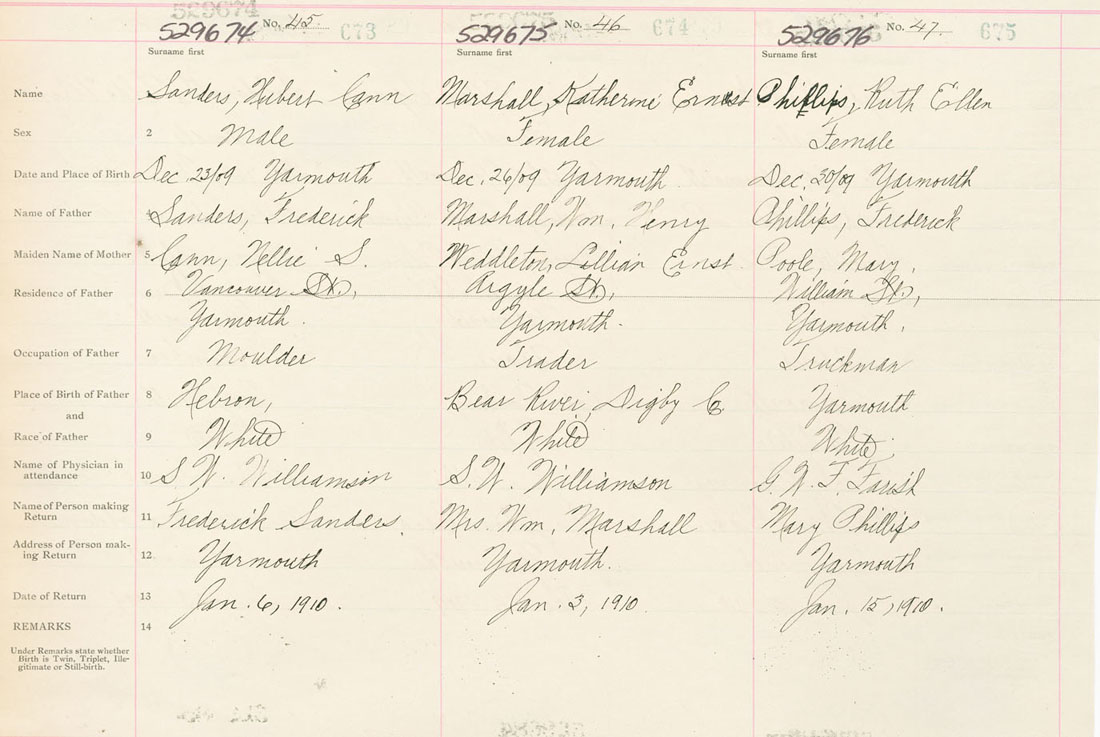 529674 No. 45 673 529675 No. 46 674 529676 No. 47 675
Surname first Surname first Surname first
Name Sanders, Hubert Cann Marshall, Katherine Ernest Phillips, Ruth Ellen
Sex 2 Male Female Female
Date and Place of Birth Dec. 23/09 Yarmouth Dec. 26/09 Yarmouth Dec. 30/09 Yarmouth
Name of Father Sanders, Frederick Marshall, Wm. Henry Phillips, Frederick
Maiden Name of Mother 5 Cann, Nellie S. Weddleton, Lillian Ernst. Poole, Mary.
Residence of Father 6 Vancouver St., Argyle St., William St.,
Yarmouth. Yarmouth. Yarmouth.
Occupation of Father 7 Moulder Trader Truckman
Place of Birth of Father 8 Hebron, Bear River, Digby Co. Yarmouth
and
Race of Father 9 White White White
Name of Physician in
attendance 10 S. W. Williamson S. W. Williamson G. W. T. Farish
Name of Person making
Return 11 Frederick Sanders. Mrs. Wm. Marshall Mary Phillips
Address of Person mak-
ing Return 12 Yarmouth Yarmouth. Yarmouth
Date of Return 13 Jan. 6, 1910. Jan. 3, 1910. Jan. 15, 1910.
REMARKS 14
Under Remarks state whether
Birth is Twin, Triplet, Ille-
gitimate or Still-birth.